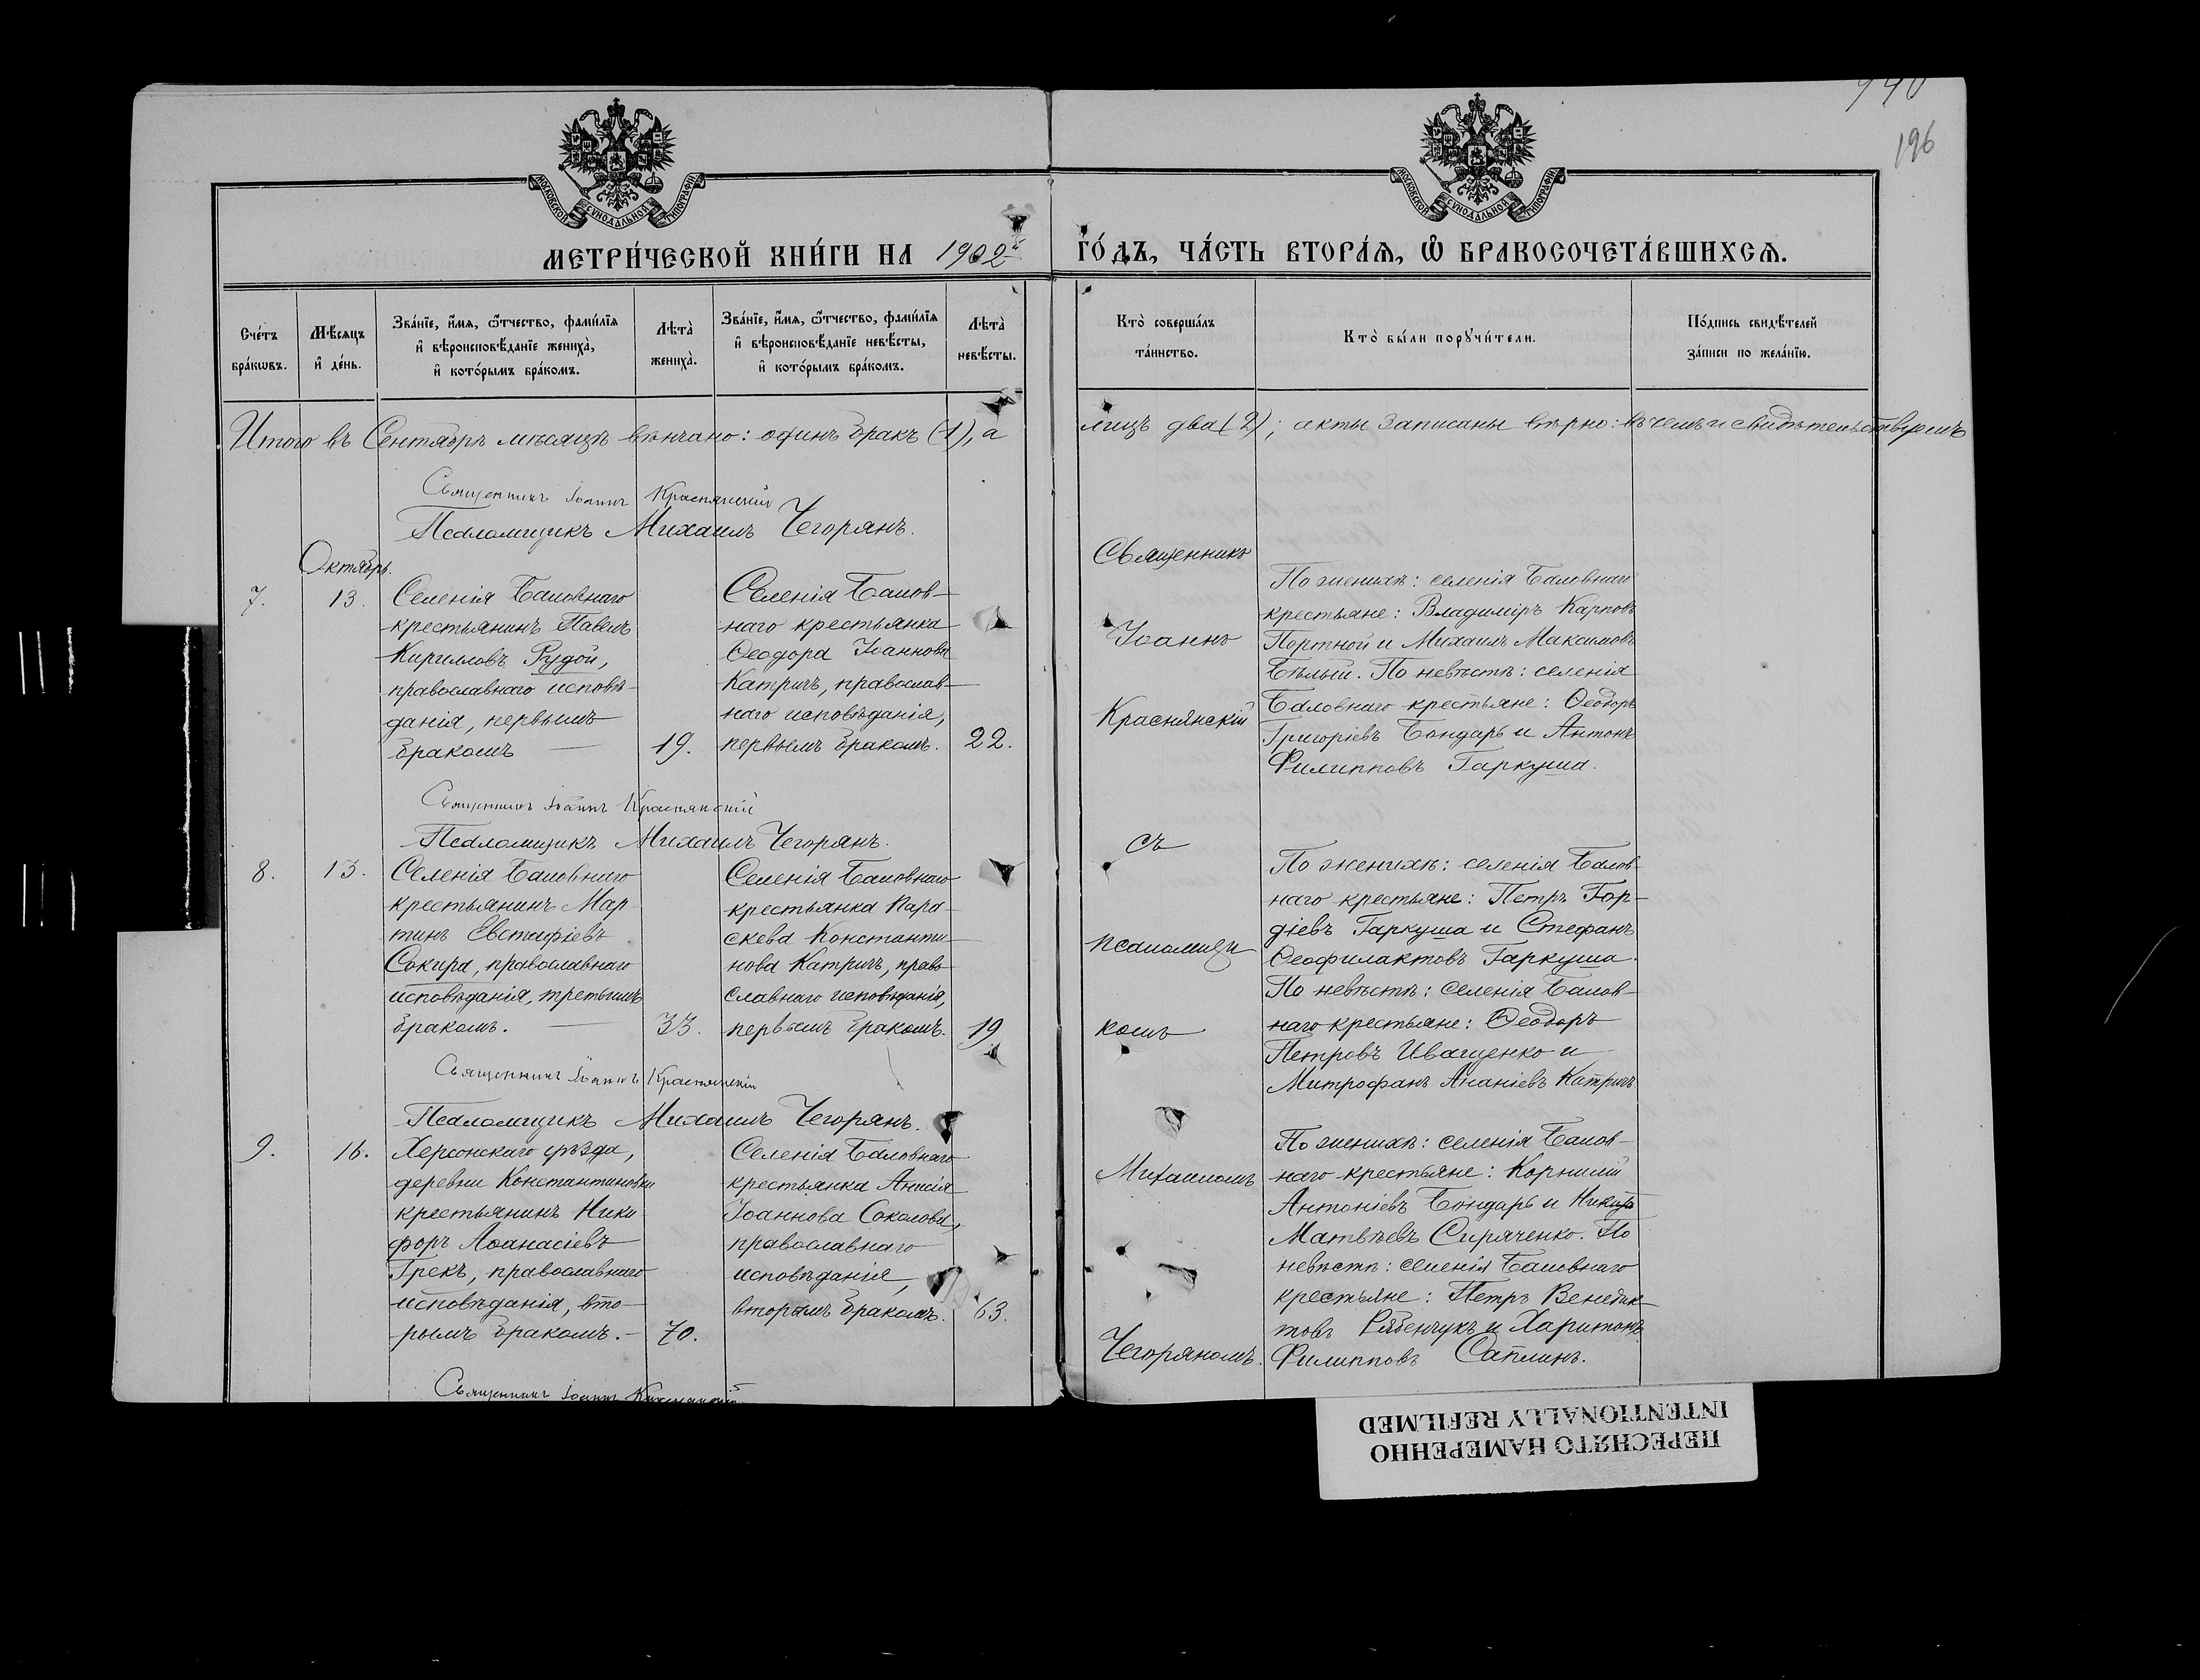 940
196
МОСКОВСКОЙ СУНОДАЛЬНОЙ ТИПОГРАФІИ
МОСКОВСКОЙ СУНОДАЛЬНОЙ ТИПОГРАФІИ
МЕТРИ́ЧЕСКОЙ КНИ́ГИ НА 1902 й
ГО́ДЪ, ЧА́СТЬ ВТОРА́Я, Ѽ БРАКОСОЧЕТА́ВШИХСЯ.
Сче́тъ бра́кѡвъ.
Мѣ́сяцъ и҆ де́нь.
Зва́нїе, и҆́мя, ѻ҆́тчество, фами́лїя
и҆ вѣроисповѣ́данїе жениха̀,
и҆ кото́рымъ бра́комъ.
Лѣта̀ жениха̀.
Зва́нїе, и҆́мя, ѻ҆́тчество, фами́лїя
и҆ вѣроисповѣ́данїе невѣ́сты,
и҆ кото́рымъ бра́комъ.
Лѣта̀ невѣ́сты.
Кто̀ соверша́лъ
та́инство.
Кто̀ бы́ли порꙋчи́тели.
По́дпись свидѣ́телей
за́писи по жела́нїю.
Итого въ Сентябрѣ мѣсяцѣ вѣнчано: одинъ бракъ (1), а
лицъ два (2); акты записаны вѣрно: въ чемъ и свидѣтельствуемъ
Священникъ Іоаннъ Краснянскій
Псаломщикъ Михаилъ Чегорянъ.
Октябрь.
7.
13.
Селенія Баловнаго
крестьянинъ Павелъ
Кирилловъ Рудой,
православнаго исповѣ-
данія, первымъ
бракомъ —
19.
Селенія Балов-
наго крестьянка
Ѳеодора Іоаннова
Катричъ, православ-
наго исповѣданія,
первымъ бракомъ.
22.
Священникъ
Іоаннъ
Краснянскій
съ
псаломщи
комъ
Михаиломъ
Чегоряномъ.
По женихѣ: селенія Баловнаго
крестьяне: Владиміръ Карповъ
Портной и Михаилъ Максимовъ
Бѣлый. По невѣстѣ: селенія
Баловнаго крестьяне: Ѳеодоръ
Григоріевъ Бондарь и Антонъ
Филипповъ Гаркуша.
Священникъ Іоаннъ Краснянскій
Псаломщикъ Михаилъ Чегорянъ.
8.
13.
Селенія Баловнаго
крестьянинъ Мар-
тинъ Евстафіевъ
Сокира, православнаго
исповѣданія, третьимъ
бракомъ. —
33.
Селенія Баловнаго
крестьянка Пара-
скева Константи-
нова Катричъ, право-
славнаго исповѣданія,
первымъ бракомъ.
19
По женихѣ: селенія Балов-
наго крестьяне: Петръ Гор-
діевъ Гаркуша и Стефанъ
Ѳеофилактовъ Гаркуша.
По невѣстѣ: селенія Балов-
наго крестьяне: Ѳеодоръ
Петровъ Иващенко и
Митрофанъ Ананіевъ Катричъ
Священникъ Іоаннъ Краснянскій
Псаломщикъ Михаилъ Чегорянъ.
9.
16.
Херсонскаго уѣзда,
деревни Константиновки
крестьянинъ Ники-
форъ Аѳанасіевъ
Грекъ, православнаго
исповѣданія, вто-
рымъ бракомъ. —
70.
Селенія Баловнаго
крестьянка Анисія
Іоаннова Соколова,
православнаго
исповѣданія,
вторымъ бракомъ.
63.
По женихѣ: селенія Балов-
наго крестьяне: Корнилій
Антоніевъ Бондарь и Никита
Матвѣевъ Сиряченко. По
невѣстѣ: селенія Баловнаго
крестьяне: Петръ Венедик-
товъ Рябенчукъ и Харитонъ
Филипповъ Саплинъ.
Священникъ Іоаннъ Краснянскій
ПЕРЕСНЯТО НАМЕРЕННО
INTENTIONALLY REFILMED